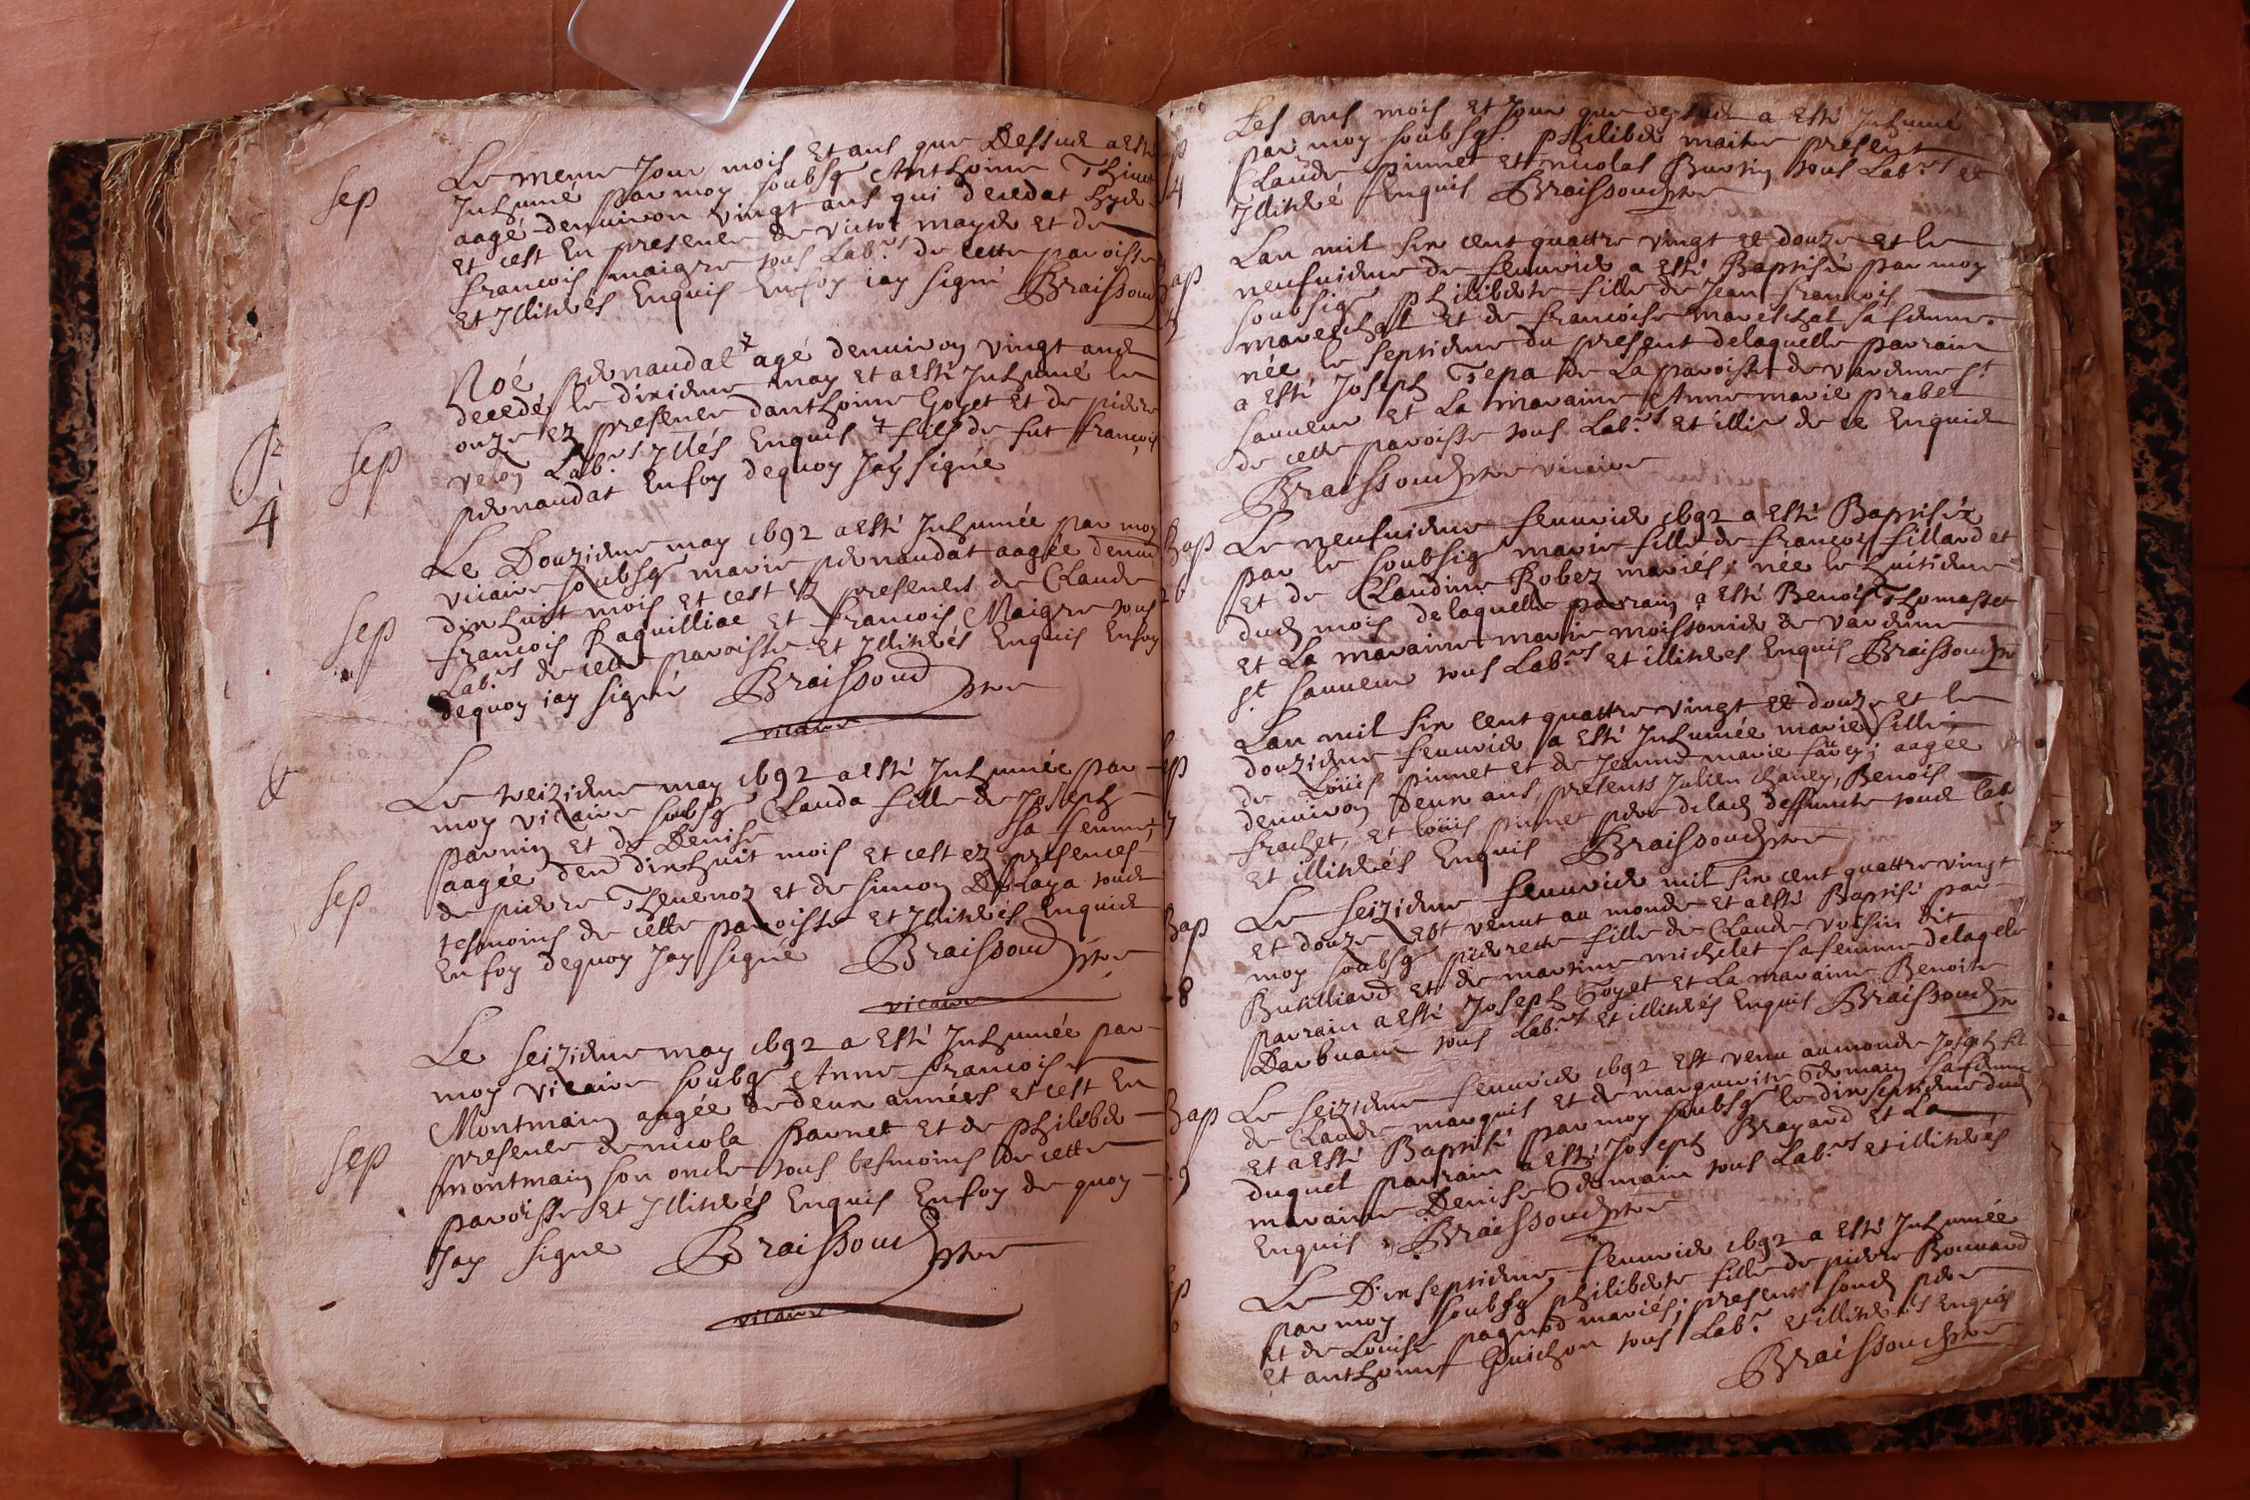 sep
Le meme Jour mois et ans que Dessus a esté
Inhumé par moy soubsg Anthoine Thinet
aagé denuiron vingt ans qui deceda hyer
et cest En presence de victor mayde et de
francois maigre tous Lab.rs de cette paroisse
et Illitrés Enquis Enfoy iay signé Braissoud
sep
Noé pernaudat + agé denuiron vingt ans
decedé le dixieme may et a esté Inhumé le
onze ez presence danthoine Goyet et de pierre
velon Lab.rs Illés Enquis + fils de fut francois
pernaudat Enfoy dequoy Jay signé
4
sep
Le Douzieme may 1692 a esté Inhumée par moy
vicaire soubsg marie pernaudat aagée denui
dix huit mois et cest ez presences de Claude
francois Raquilliac et francois Maigre tous
Lab.rs de cette paroisse et Illitrés Enquis Enfoy
dequoy iay signé Braissoud ptre
vicaire
sep
Le treizieme may 1692 a esté Inhumée par
moy vicaire soubsg Clauda fille de Joseph
parnin et de Denise sa femme
aagée den dixhuit mois et cest ez presences
de pierre Theuenoz et de simon Delaya tous
tesmoins de cette paroisse et Illitrés Enquis
En foy dequoy Jay signé Braissoud ptre
vicaire
sep
Le seizieme may 1692 a esté Inhumée par
moy vicaire soubsg Anne francoise
Montmain aagée de deux années et cest En
presence de nicola parnet et de philiber
montmain son oncle tous tesmoins de cette
paroisse et Illitrés Enquis Enfoy de quoy
Jay signe Braissoud ptre
vicaire
4
Les ans mois et Jour que dessus a esté Inhumé
par moy soubsg philiber maitre present
Claude pinnet et nicolas Burtin tous Lab.rs et
Illitré Enquis Braissoud ptre
bap
Lan mil six cent quattre vingt et douze et le
neufuieme de feuurier a esté Baptisée par moy
soubsig philiberte fille de Jean francois
mareschal et de francoise mareschal sa femme
née le septieme du present delaquelle parrain
a esté Joseph Tepa de La paroisse de varenne st
sauueur et La maraine Anne marie prabel
de cette paroisse tous Lab.rs et illis de ce Enquis
Braissoud ptre vicaire
bap
6
Le neufuieme feuurier 1692 a esté Baptisée
par le soubsig marie fille de francois fillard et
et de Claudine Bobez mariés, née le huitieme
dud mois delaquelle parrain a esté Benoist Thomasset
et La maraine marie moissonnier de varenne
st sauueur tous Lab.rs et illitrés Enquis Braissoud ptre
sep
7
Lan mil six cent quattre vingt et douze et le
douzieme feuurier a esté Inhumée marie fille
de Loüis pinnet et de Jeanne marie farcy; aagée
denuiron deux ans, presents Julien Chaney, Benois
frachet, et loüis pinnet pere delad deffuncte tous lab
et illitrés Enquis Braissoud ptre
bap
8
Le seizieme feuurier mil six cent quattre vingt
et douze est venut au monde et a esté Baptisé par
moy soubsg pierrette fille de Claude voisin dit
Butilliard et de martine michelet sa femme delaqelle
parrain a esté Joseph Goyet et La maraine Benoite
Darbuam tous Lab.rs et illitrés Enquis Braissoud ptre
bap
9
Le seizieme feuurier 1692 est venu aumonde Joseph fil
de Claude marquis et de marguerite Germain sa femme
et a esté Baptisé par moy soubsg le dixseptieme dud
duquel parrain a esté Joseph Brayard et La
maraine Denise Germain tous Lab.rs et illitrés
Enquis, Braissoud ptre
Le Dixseptieme feuurier 1692 a esté Inhumée
par moy soubsg philiberte fille de pierre Bouuard
et de Louise pagnod mariés; presents soud pere
et anthoine Guichon tous Lab.r et illitrés Enquis
Braissoud ptre